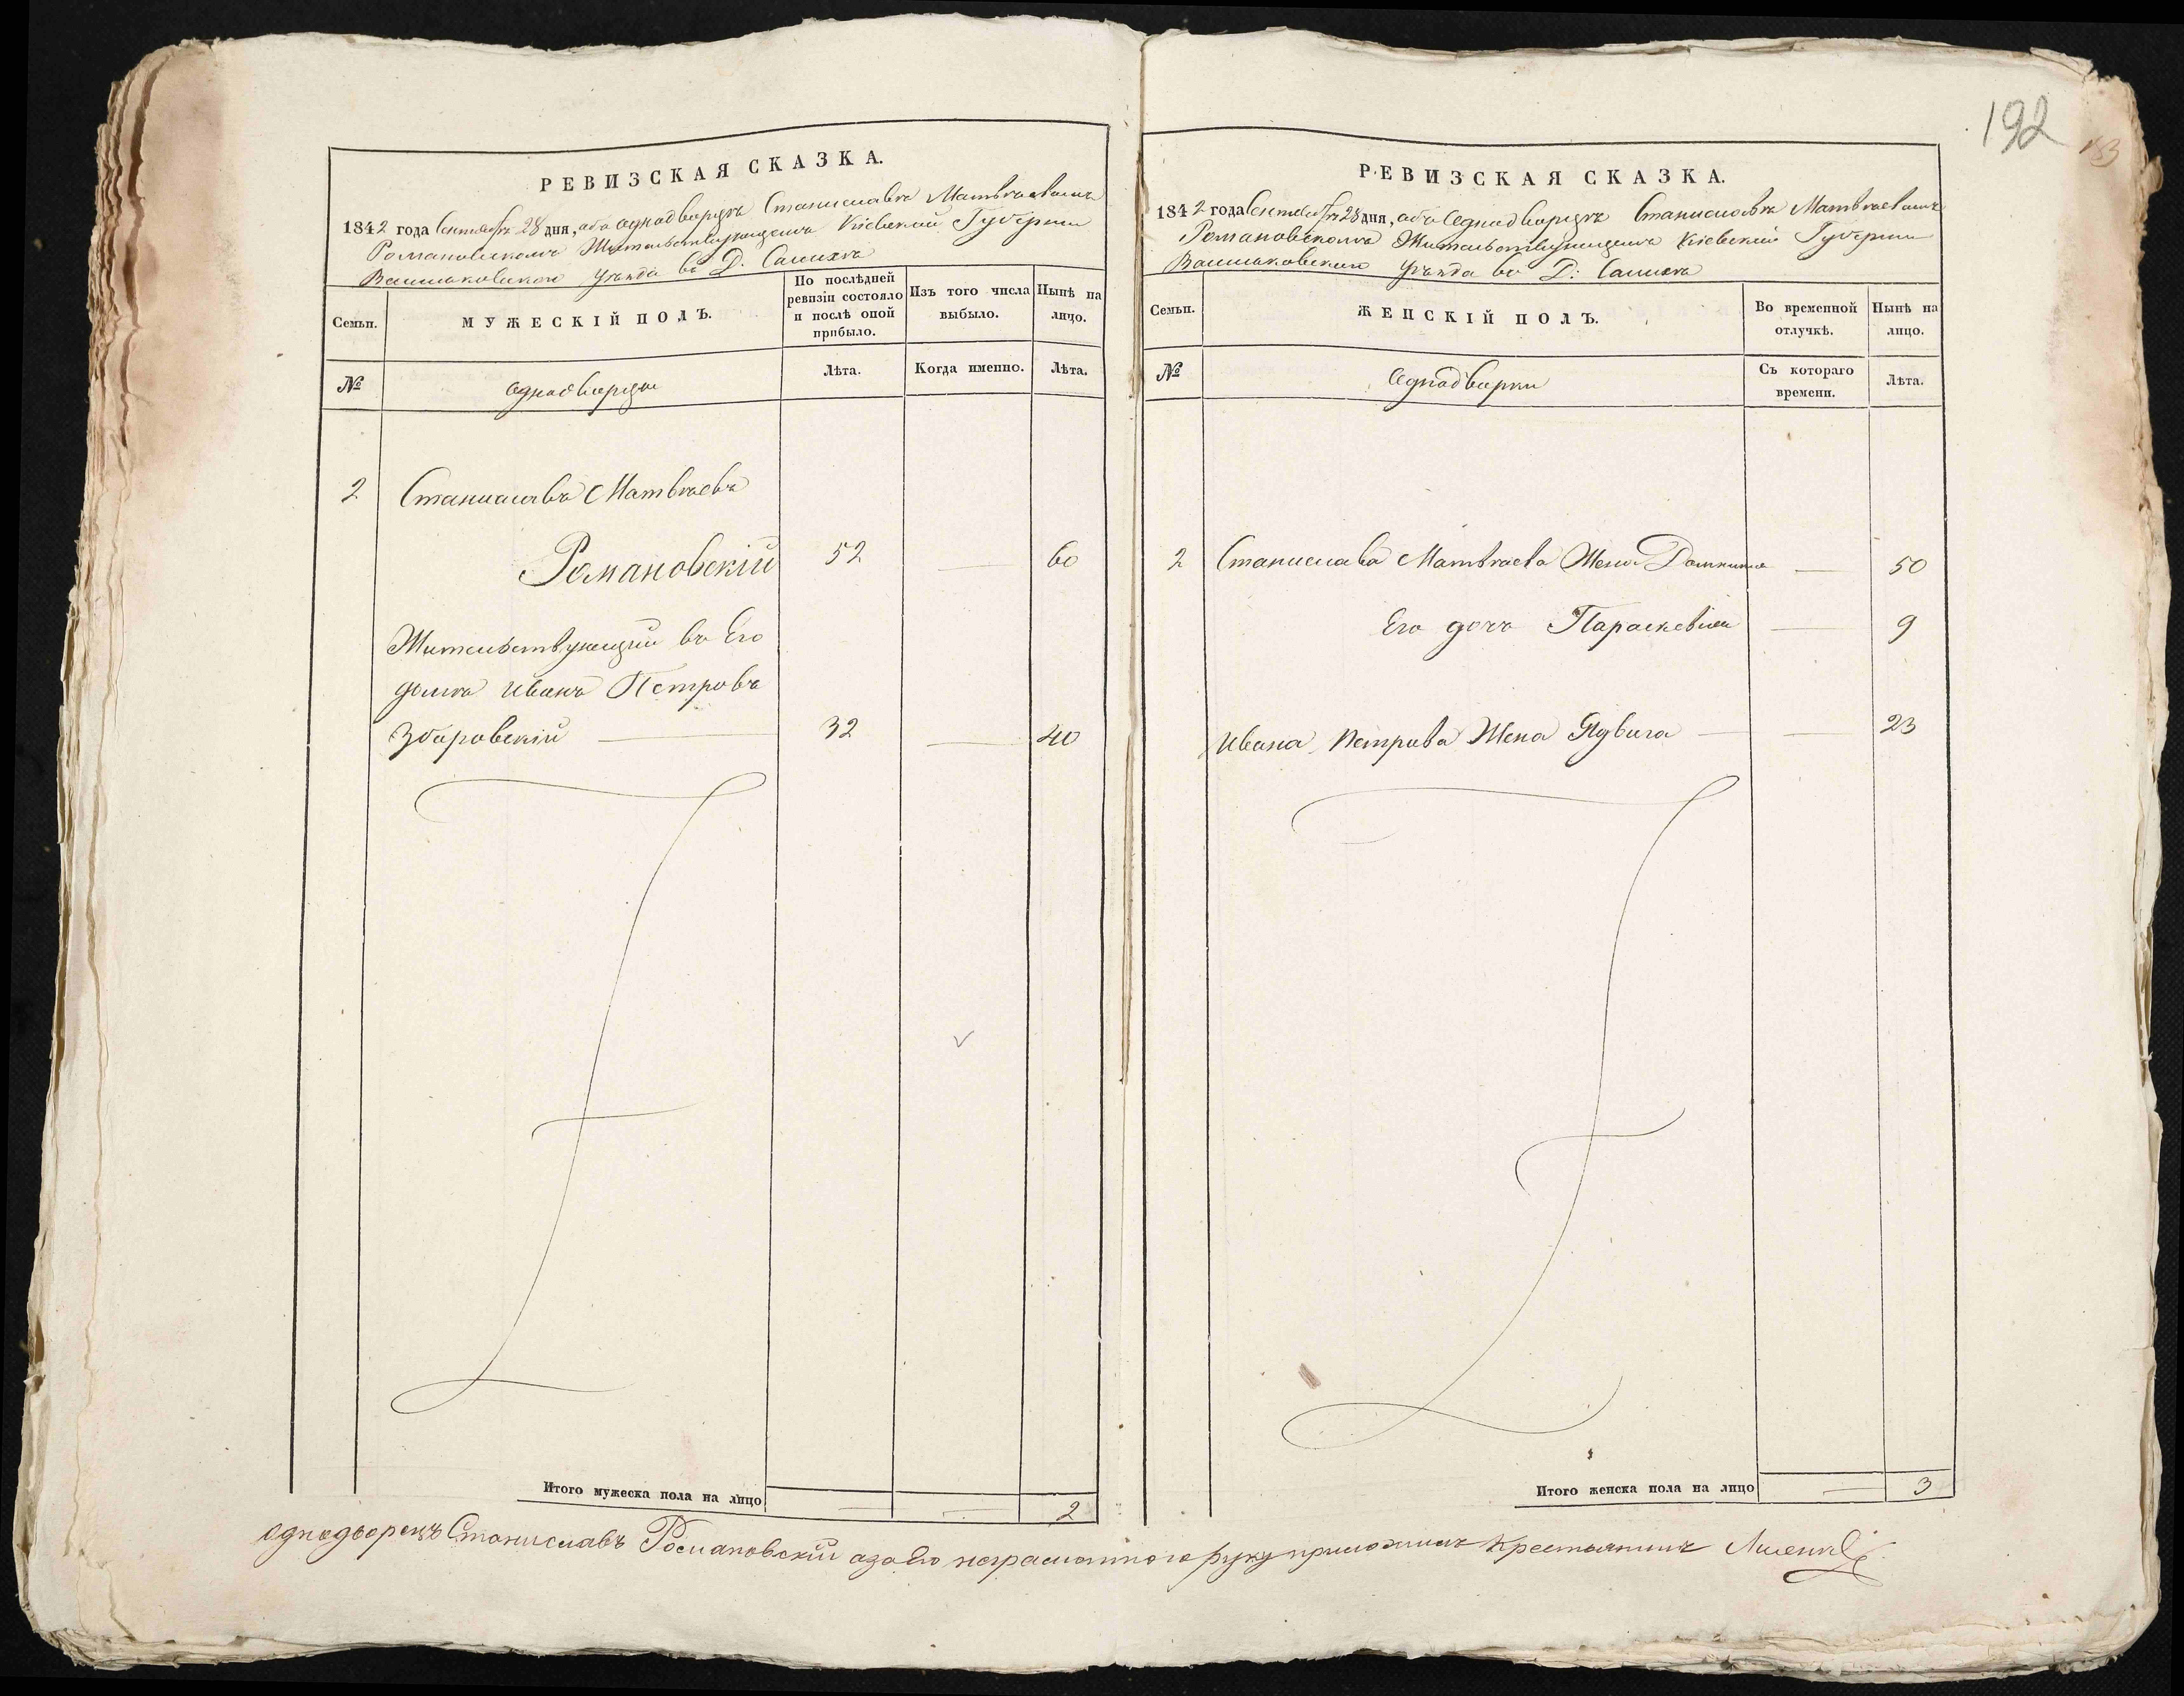 192
РЕВИЗСКАЯ СКАЗКА.
1842 года Сентября 28 дня, объ однодворцѣ Станиславѣ Матвѣевомъ
Романовскомъ Жительствующемъ Кіевской Губерніи
Васильковскаго уѣзда въ Д.
Семьи.
МУЖЕСКІЙ ПОЛЪ.
По послѣдней ревизіи состояло и послѣ оной прибыло.
Изъ того числа выбыло.
Нынѣ на лицо.
№
Однодворцы
Лѣта.
Когда именно.
Лѣта.
2 Станиславъ Матвѣевъ
Романовскій 52 — 60
Жительствующій въ Его
домѣ Иванъ Петровъ
Збаровскій — 32 — 40
Итого мужеска пола на лицо — — 2
РЕВИЗСКАЯ СКАЗКА.
1842 года Сентября 28 дня, объ Однодворцѣ Станиславѣ Матвѣевомъ
Романовскомъ Жительствующемъ Кіевской Губерніи
Васильковскаго уѣзда во Д:
Семьи.
ЖЕНСКІЙ ПОЛЪ.
Во временной отлучкѣ.
Нынѣ на лицо.
№
Однодворки
Съ котораго времени.
Лѣта.
2 Станислава Матвѣева Жена — 50
Его дочь Параскевія — 9
Ивана Петрова Жена Ядвига — — 23
Итого женска пола на лицо — 3
однодворецъ Станиславъ Романовскій а за Его неграмотного руку приложилъ Крестьянинъ